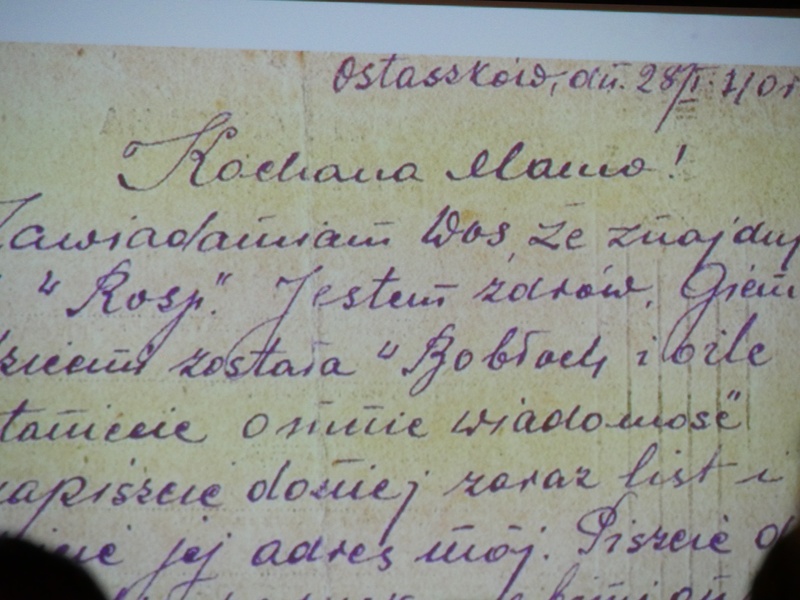 Ostaszków, dn. 28/I
Kochana Mamo!
Zawiadamiam Was, że znajduj
"Rosji". Jestem zdrów.
została "Bobłach i oile
o mnie wiadomość"
napiszcie doniej zaraz list i
jej adres mój. Piszcie